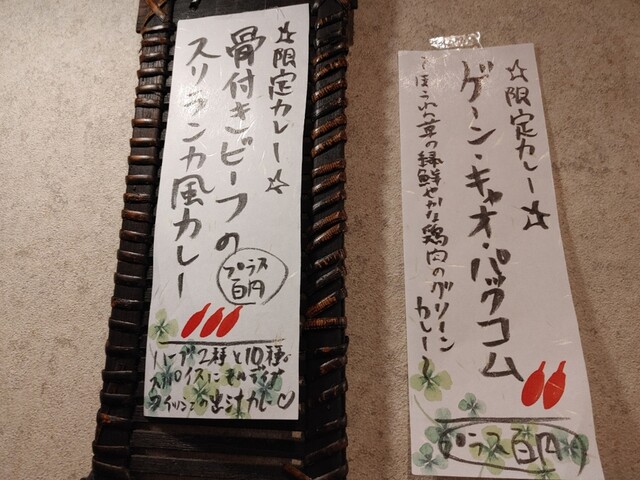 ☆限定カレー☆
骨付きビーフの
スリランカ風カレー
プラス
百円
ハーブ2種と10種の
スパイスにモルディブ
フィッシュの出汁カレー
☆限定カレー☆
ゲーン・キャオ・パックコム
〜ほうれん草の緑鮮やかな鶏肉のグリーン
カレー〜
プラス百円